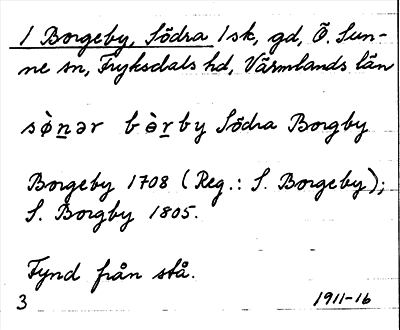 1 Borgeby, Södra 1sk, gd, Ö. Sun-
ne sn, Fryksdals hd, Värmlands län
sø̀ṉər bò̱ṟby Södra Borgby
Borgeby 1708 (Reg.: S. Borgeby);
S. Borgby 1805.
Fynd från stå.
3 1911-16